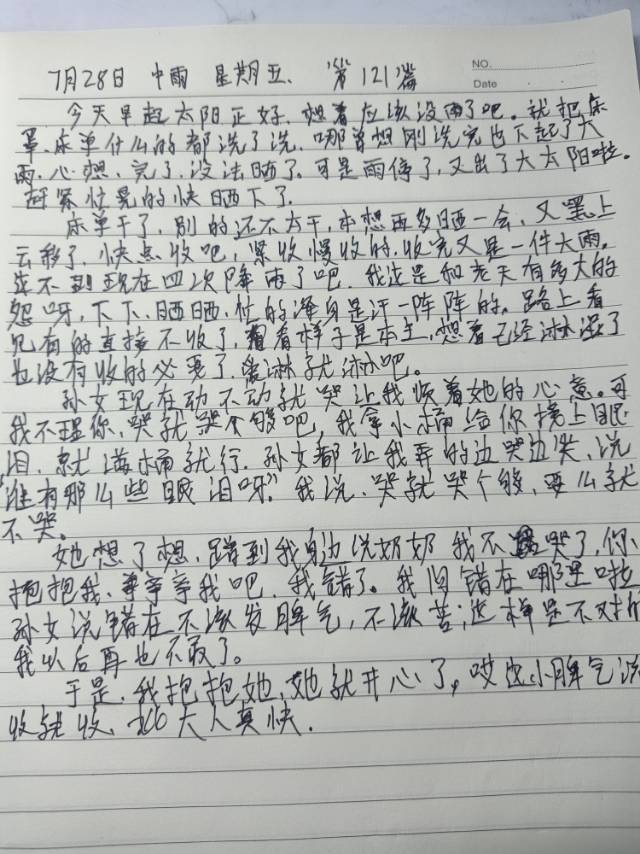 NO.
Date
7月28日 中雨 星期五. 第121篇
今天早起太阳正好.想着应该没雨了吧。就把床
单、床单什么的都洗了洗.哪曾想刚洗完也下起了大
雨.心想.完了.没法晒了.可是雨停了,又出了大太阳啦.
赶紧忙晃的快晒下了.
床单干了,别的还不太干,本想再多晒一会,又黑上
云移了,快点收吧,紧收慢收的,收完又是一件大雨。
到现在四次降雨了吧.我这是和老天有多大的
怨呀,下下、晒晒,忙的浑身是汗一阵阵的。路上看
见有的直接不收了,看着样子是本土,想着已经淋湿了
也没有收的必要了,爱淋就淋吧。
孙女现在动不动就哭让我顺着她的心意。可
我不理你、哭就哭个够吧,我拿小桶给你接上眼
泪.就满桶就行.孙女都让我弄的边哭边笑,说
谁有那么些眼泪呀"我说.哭就哭个够,要么就
不哭。
她想了想.蹭到我身边说奶奶我不哭了,你
抱抱我.等等等我吧.我错了。我问错在哪里啦
孙女说错在不该发脾气,不该苦;这样是不对
我以后再也不敢了。
于是.我抱抱她,她就开心了,哎也小脾气说
收就收.比大人真快.